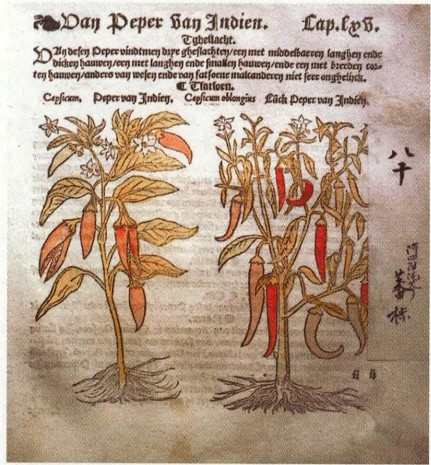 Van Peper van Indien. Cap.lxv.
Tgheslacht.
VAn desen Peper vindtmen drye gheslachten/een met middelbaeren langhen ende
dicken hauwen/een met langhen ende smallen hauwen/ende een met breeden cor-
ten hauwen/anders van wesen ende van fatsoene malcanderen niet seer onghelijck.
Tfatsoen.
Capsicum. Peper van Indien. Capsicum oblongius Lück Peper van Indiën.
八十
蕃椒